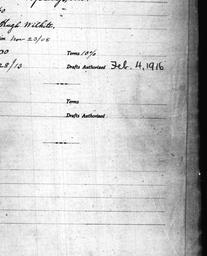 Hugh Wilhite.
Nov 23/08
00
Terms 10%
28/13
Drafts Authorized Feb. 4, 1916
Terms
Drafts Authorized